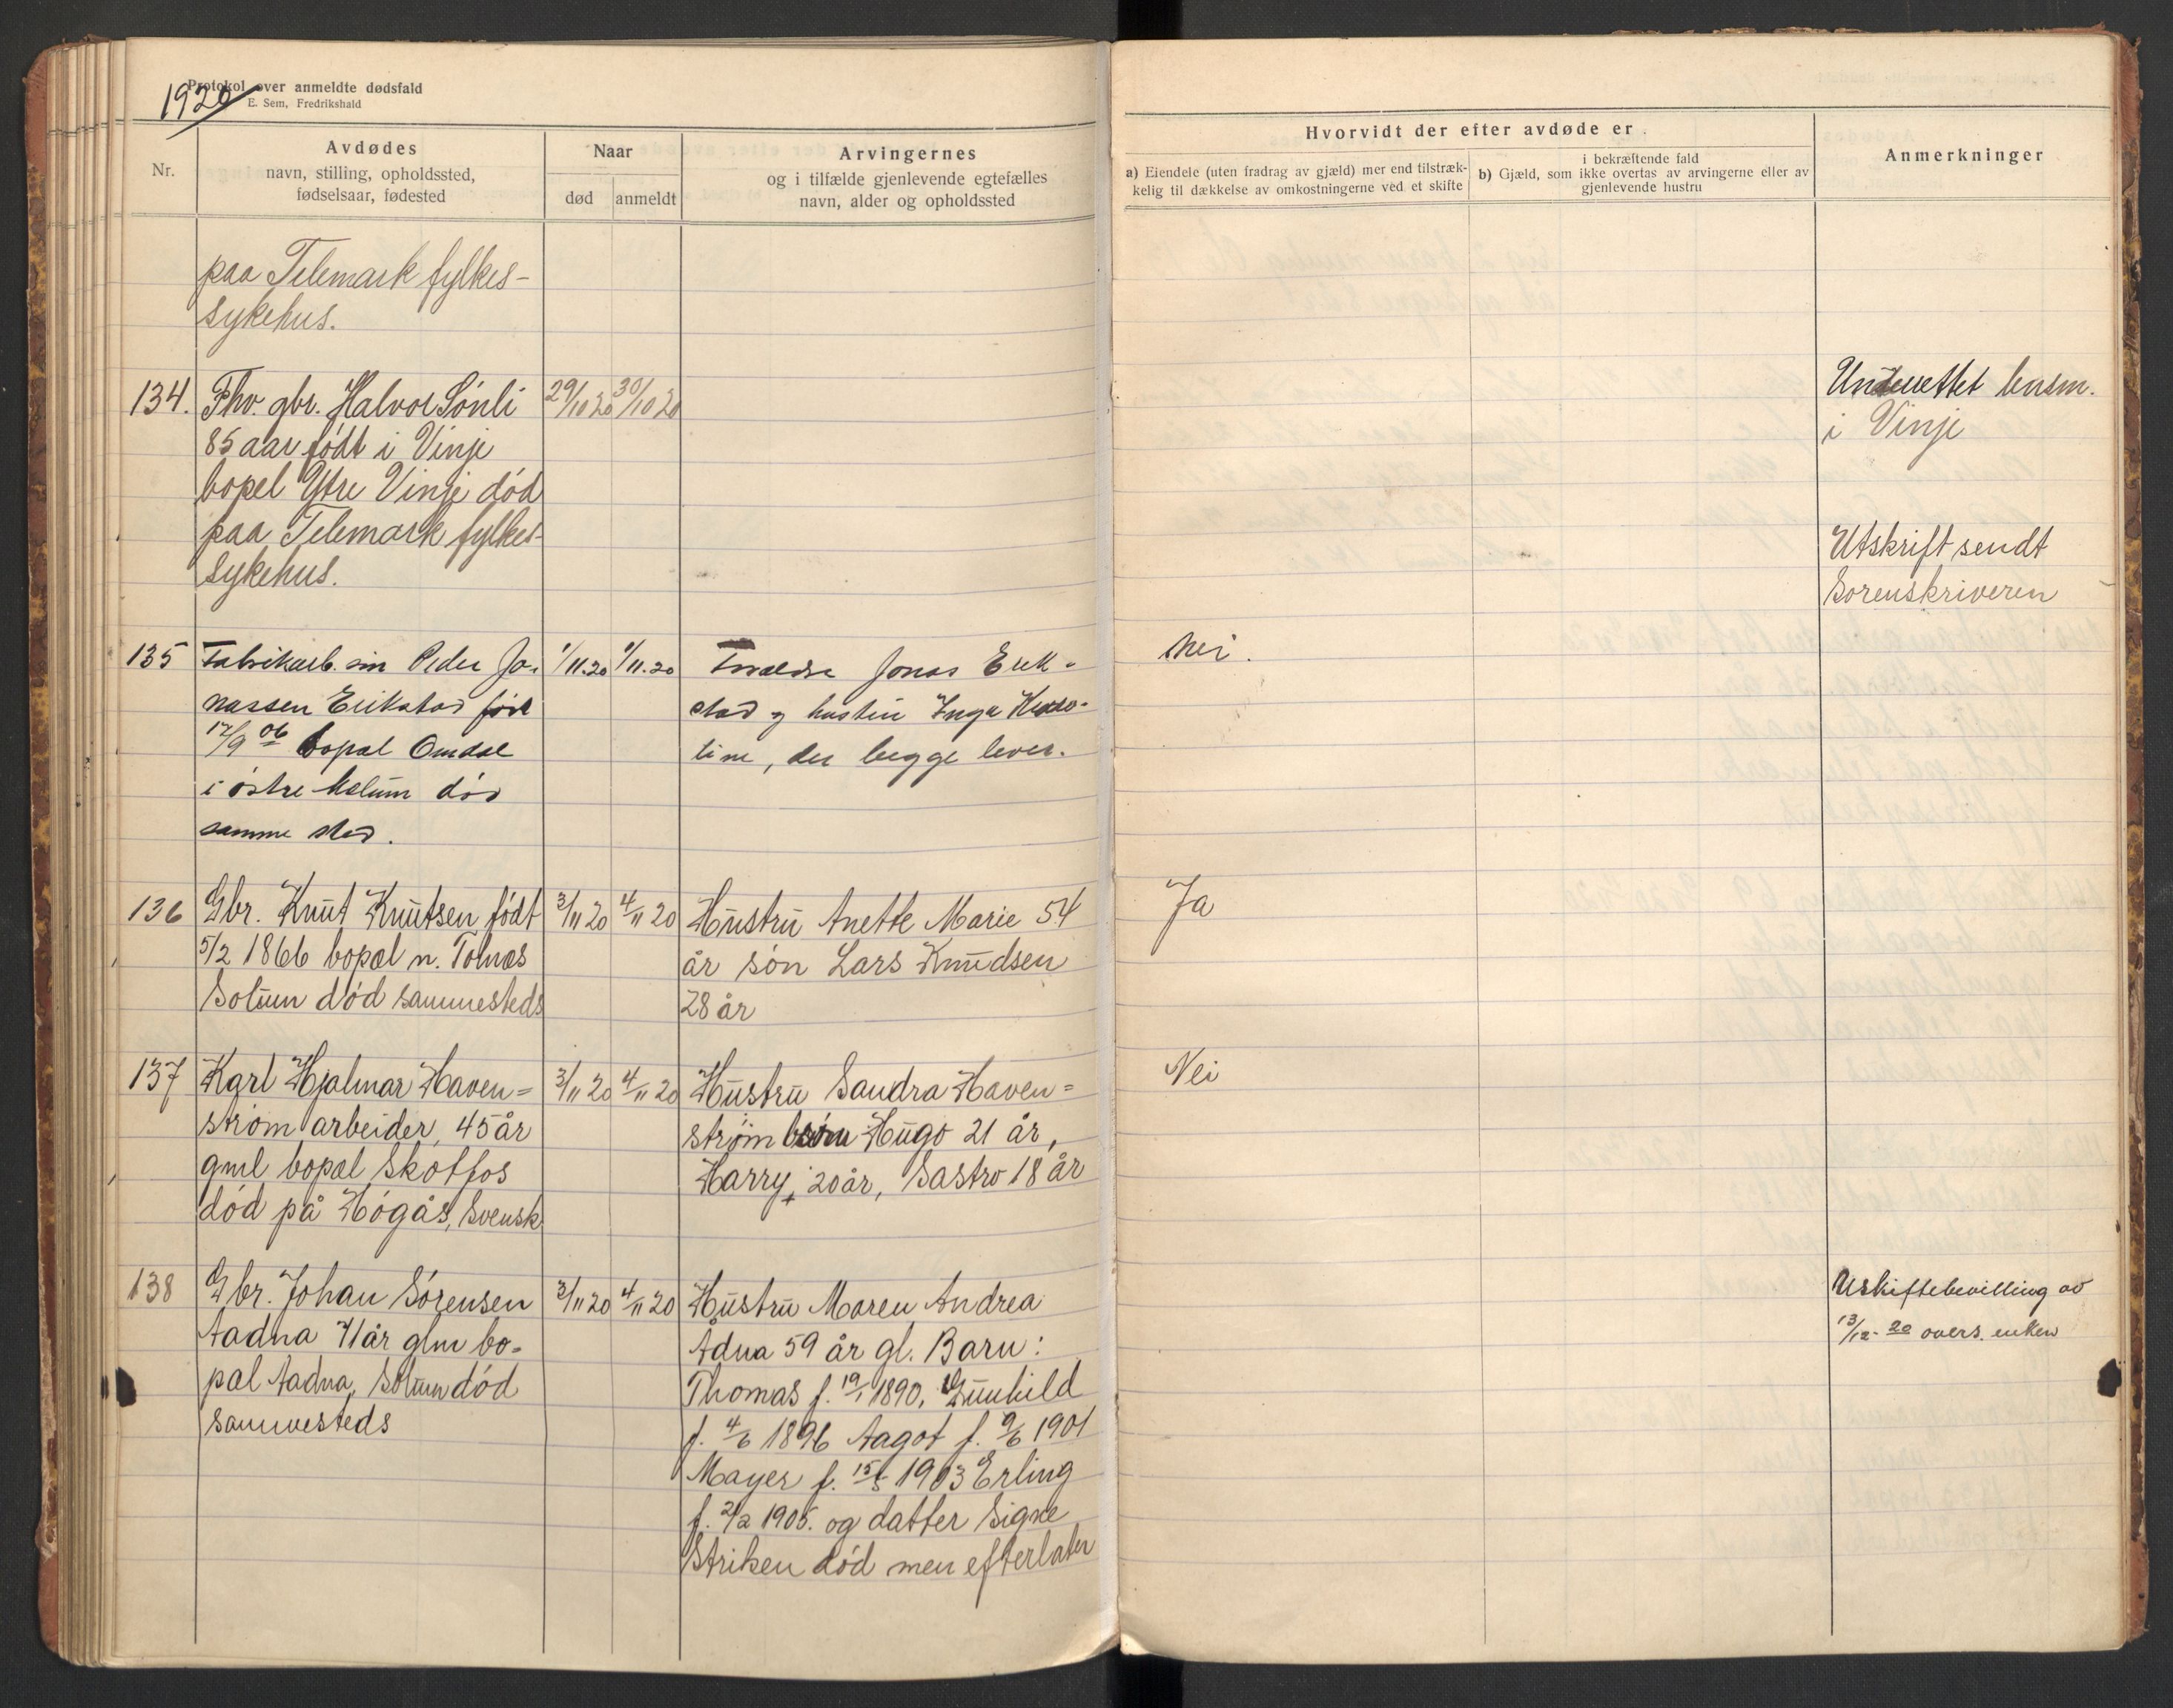 1920
Protokol over anmeldte dødsfald
E. Sem, Fredrikshald
Nr.
Avdødes
navn, stilling, opholdssted,
fødselsaar, fødested
Naar
død
anmeldt
Arvingernes
og i tilfælde gjenlevende egtefælles
navn, alder og opholdssted
Hvorvidt der efter avdøde er
a) Eiendele (uten fradrag av gjæld) mer end tilstræk-
kelig til dækkelse av omkostningerne ved et skifte
i bekræftende fald
b) Gjæld, som ikke overtas av arvingerne eller av
gjenlevende hustru
Anmerkninger
paa Telemark fylkes-
sykehus.
134.
Fhv. gbr. Halvor Sönli
85 aar født i Vinje
bopel Ytre Vinje död
paa Telemark fylkes-
sykehus.
29/10 20
30/10 20
Underrettet lensm.
i Vinje
Utskrift sendt
Sorenskriveren
135
Fabrikarb. sön Peder Jo-
nassen Erikstad född
17/9 06 bopæl Omdal
i östre Solum död
samme sted.
1/11.20
1/11.20
Forældre Jonas Erik-
stad og hustru Inga
tine, der begge lever.
Nei.
136
Gbr. Knut Knutsen födt
5/2 1866 bopæl n. Tolnæs
Solum död sammesteds
3/11 20
4/11 20
Hustru Anette Marie 54
år sön Lars Knudsen
28 år
Ja
137
Karl Hjalmar Haven=
ström arbeider, 45 år
gml bopæl Skotfos
död på Högås, Svensk
3/11 20
4/11 20
Hustru Sandra Haven=
ström börn Hugo 21 år,
Harry, 20 år, Sastro 18 år
Nei
138
Gbr. Johan Sörensen
Aadna 71 år glm bo-
pæl Aadna, Solum död
sammesteds
3/11 20
4/11 20
Hustru Maren Andrea
Ådna 59 år gl. Barn:
Thomas f. 19/1 1890, Gunhild
f. 4/6 1896 Aagot f. 9/6 1901
Mayer f. 15/5 1903 Erling
f. 2/2 1905. og datter Signe
Striken död men efterlater
Uskiftebevilling av
13/12- 20 overs. enken